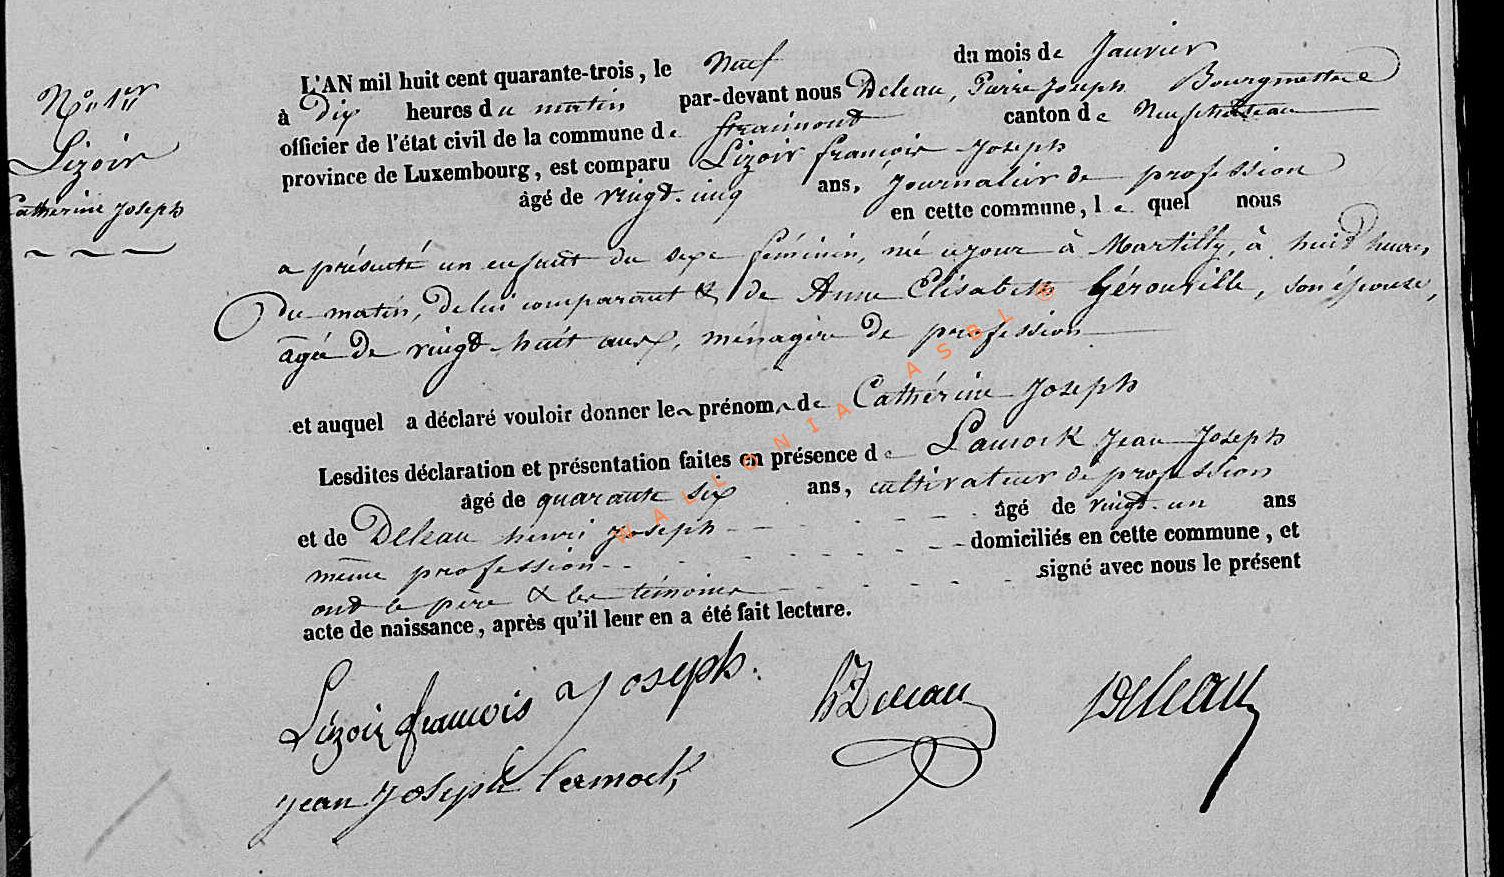 N° 1er
Lizoir
Catherine Joseph
L'AN mil huit cent quarante-trois, le Neuf du mois de Janvier
à Dix heures du matin par-devant nous Deleau, Pierre Joseph Bourgmestre
officier de l'état civil de la commune de Straimont canton de Neufchateau
province de Luxembourg, est comparu Lizoir françois Joseph
âgé de vingt-cinq ans, Journalier de profession
en cette commune, lequel nous
a présenté un enfant du sexe féminin, né cejour à Martilly, à huit heures
du matin, de lui comparant & de Anne Elisabeth Gérouville, son épouse,
agée de vingt-huit ans, ménagère de profession
et auquel a déclaré vouloir donner les prénoms de Cathérine Joseph
Lesdites déclaration et présentation faites en présence de Lamock Jean Joseph
âgé de quarante six ans, cultivateur de profession
et de Deleau henri Joseph âgé de vingt-un ans
même profession domiciliés en cette commune, et
ont le père & les témoins signé avec nous le présent
acte de naissance, après qu'il leur en a été fait lecture.
Lizoir francois Joseph.
hDeleau
Deleau
jean Joseph lermock
WALLONIA ASBL ®